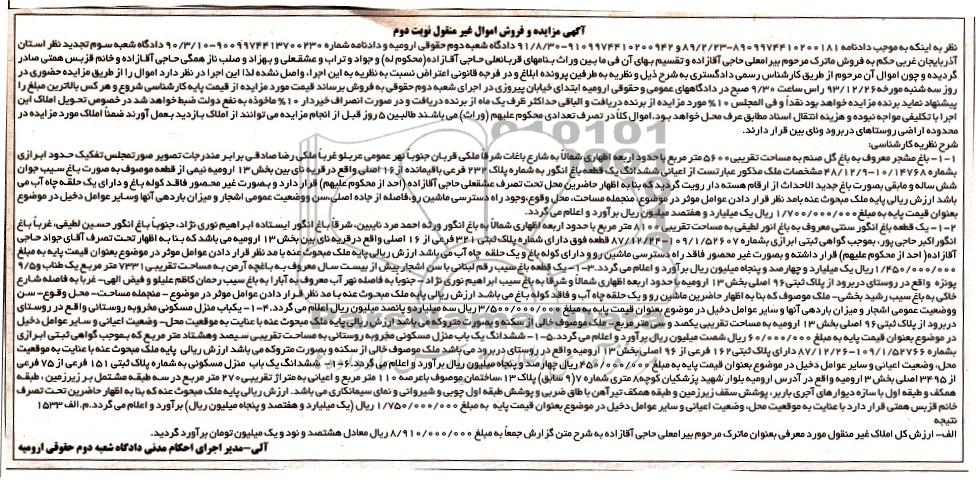 آگهی مزایده و فروش اموال غیر منقول نوبت دوم
نظر به اینکه به موجب دادنامه ۸۹۰۹۹۷۴۴۱۰۲۰۰۱۸۱-۸۹/۲/۲۳ و ۹۱۰۹۹۷۴۴۱۰۲۰۰۹۴۲-۹۱/۸/۳۰ دادگاه شعبه دوم حقوقی ارومیه و دادنامه شماره ۹۰۰۹۹۷۴۴۱۳۷۰۰۲۳۰-۹۰/۳/۱۰ دادگاه شعبه سوم تجدید نظر استان
آذربایجان غربی حکم به فروش ماترک مرحوم بیرامعلی حاجی آقازاده و تقسیم بهای آن فی ما بین وراث بنامهای قربانعلی حاجی آقازاده(محکوم له) و جواد و تراب و عشقعلی و بهزاد و صلب ناز همگی حاجی آقازاده و خانم قزبس همتی صادر
گردیده و چون اموال آن مرحوم از طریق کارشناس رسمی دادگستری به شرح ذیل و نظریه به طرفین پرونده ابلاغ و در فرجه قانونی اعتراض نسبت به نظریه به این اجراء واصل نشده لذا این اجرا در نظر دارد اموال را از طریق مزایده حضوری در
روز سه شنبه مورخه ۹۳/۱۲/۲۶ راس ساعت ۹/۳۰ صبح در دادگاههای عمومی و حقوقی ارومیه ابتدای خیابان پیروزی در اجرای شعبه دوم حقوقی به فروش برساند قیمت مورد مزایده از قیمت پایه کارشناسی شروع و هر کس بالاترین مبلغ را
پیشنهاد نماید برنده مزایده خواهد بود نقداً و فی المجلس ۱۰% مورد مزایده از برنده دریافت و الباقی حداکثر ظرف یک ماه از برنده دریافت و در صورت انصراف خریدار ۱۰% ماخوذه به نفع دولت ضبط خواهد شد در خصوص تحویل املاک این
اجرا با تکلیفی مواجه نبوده و هزینه انتقال اسناد مطابق عرف محل خواهد بود. اموال کلاً در تصرف تعدادی محکوم علیهم (وراث) می باشند طالبین ۵ روز قبل از انجام مزایده می توانند از املاک بازدید بعمل آورند ضمناً املاک مورد مزایده در
محدوده اراضی روستاهای دربرود ونای بین قرار دارند.
شرح نظریه کارشناسی:
۱-۱- باغ مشجر معروف به باغ گل صنم به مساحت تقریبی ۵۶۰۰ متر مربع با حدود اربعه اظهاری شمالاً به شارع باغات شرقاً ملکی قربان جنوباً نهر عمومی عربلو غرباً ملکی رضا صادقی برابر مندرجات تصویر صورتمجلس تفکیک حدود ابرازی
بشماره ۱۰/۱۴۷۶۸-۴۸/۱۲/۹ مشخصات ملک مذکور عبارتست از اعیانی ششدانگ یک قطعه باغ انگور به شماره پلاک ۲۳۴ فرعی باقیمانده از ۱۶ اصلی واقع در قریه نای بین بخش ۱۳ ارومیه نیمی از قطعه موصوف به صورت باغ سیب جوان
شش ساله و مابقی بصورت باغ جدید الاحداث از ارقام هسته دار رویت گردید که بنا به اظهار حاضرین محل تحت تصرف عشقعلی حاجی آقازاده (احد از محکوم علیهم) قرار دارد و بصورت غیر محصور فاقد کوله باغ و دارای یک حلقه چاه آب می
باشد ارزش ریالی پایه ملک مبحوث عنه بامد نظر قرار دادن عوامل موثر در موضوع، منجمله مساحت، محل وقوع، وجود راه دسترسی ماشین رو، فاصله از جاده اصلی، سن ووضعیت عمومی اشجار و میزان باردهی آنها وسایر عوامل دخیل در موضوع
بعنوان قیمت پایه به مبلغ ۱/۷۰۰/۰۰۰/۰۰۰ ریال یک میلیارد و هفتصد میلیون ریال برآورد و اعلام می گردد.
۱-۲- یک قطعه باغ انگور سنتی معروف به باغ انور لطیفی به مساحت تقریبی ۴۸۰۰ متر مربع با حدود اربعه اظهاری شمالاً به باغ انگور ورثه احمد مرد نایبین، شرقاً باغ انگور ایستاده ابراهیم نوری نژاد، جنوباً باغ انگور حسین لطیفی، غرباً باغ
انگور اکبر حاجی پور، بموجب گواهی ثبتی ابرازی بشماره ۱۰۹/۱/۵۲۶۰۷-۸۷/۱۲/۲۴ قطعه فوق دارای شماره پلاک ثبتی ۳۲۱ فرعی از ۱۶ اصلی واقع در قریه نای بین بخش ۱۳ ارومیه می باشد که بنا به اظهار تحت تصرف آقای جواد حاجی
آقازاده( احد از محکوم علیهم) قرار داشته و بصورت غیر محصور فاقد راه دسترسی ماشین رو و دارای کوله باغ و یک حلقه چاه آب می باشد ارزش ریالی پایه ملک مبحوث عنه با مد نظر قرار دادن عوامل موثر در موضوع بعنوان قیمت پایه به مبلغ
۱/۴۵۰/۰۰۰/۰۰۰ ریال یک میلیارد و چهارصد و پنجاه میلیون ریال برآورد و اعلام می گردد. ۳-۱- یک قطعه باغ سیب رقم لبنانی با سن اشجار بیش از بیست سال معروف به باغچه آرمن به مساحت تقریبی ۷۳۳۱ متر مربع یک طناب و ۹/۵
پونزه واقع در روستای دربرود از پلاک ثبتی ۹۶ اصلی بخش ۱۳ ارومیه با حدود اربعه اظهاری شمالاً و شرقاً به باغ سیب ابراهیم نوری نژاد – جنوبا به فاصله نهر آب معروف به آبارا به باغ سیب رحمان کاظم علیلو و فیض الهی- غربا به فاصله شارع
خاکی به باغ سیب رشید بخشی- ملک موصوف که بنا به اظهار حاضرین ماشین رو و یک حلقه چاه آب و فاقد کوله باغ می باشد ارزش ریالی پایه ملک مبحوث عنه با مد نظر قرار دادن عوامل موثر در موضوع – منجمله مساحت- محل وقوع- سن
ووضعیت عمومی اشجار و میزان باردهی آنها و سایر عوامل دخیل در موضوع بعنوان قیمت پایه به مبلغ ۳/۵۰۰/۰۰۰/۰۰۰ ریال سه میلیارد و پانصد میلیون ریال اعلام می گردد. ۴-۱- یکباب منزل مسکونی مخروبه روستائی واقع در روستای
دربرود از پلاک ثبتی ۹۶ اصلی بخش ۱۳ ارومیه به مساحت تقریبی یکصد و سی متر مربع- ملک موصوف خالی از سکنه و بصورت متروکه می باشد ارزش ریالی پایه ملک مبحوث عنه با عنایت به موقعیت محل- وضعیت اعیانی و سایر عوامل دخیل
در موضوع بعنوان قیمت پایه به مبلغ ۶۰/۰۰۰/۰۰۰ ریال شصت میلیون ریال برآورد و اعلام می گردد. ۵-۱- ششدانگ یک باب منزل مسکونی مخروبه روستائی به مساحت تقریبی سیصد وهشتاد متر مربع که بموجب گواهی ثبتی ابرازی
بشماره ۱۰۹/۱/۵۲۷۶۶-۸۷/۱۲/۲۶ دارای پلاک ثبتی ۱۶۲ فرعی از ۹۶ اصلی بخش ۱۳ ارومیه واقع در روستای دربرود می باشد ملک موصوف خالی از سکنه و بصورت متروکه می باشد ارزش ریالی پایه ملک مبحوث عنه با عنایت به موقعیت
محل، وضعیت اعیانی و سایر عوامل دخیل در موضوع بعنوان قیمت پایه به مبلغ ۴۵۰/۰۰۰/۰۰۰ ریال چهارصد و پنجاه میلیون ریال برآورد و اعلام می گردد. ۶-۱- ششدانگ یک باب منزل مسکونی به شماره پلاک ثبتی ۱۵۱ فرعی از ۷۵ فرعی
از ۳۴۹۵ اصلی بخش ۳ ارومیه واقع در آدرس ارومیه بلوار شهید پزشکیان کوچه ۸ متری شماره ۷(۹ سابق) پلاک ۱۳، ساختمان موصوف باعرصه ۱۱۰ متر مربع و اعیانی به متراژ تقریبی ۲۷۰ متر مربع در سه طبقه مشتمل بر زیرزمین، طبقه
همکف و طبقه اول با سازه دیوارهای آجری باربر، پوشش سقف زیرزمین و طبقه همکف تیرآهن با طاق ضربی و پوشش طبقه اول چوبی و شیروانی و نمای سیمانکاری می باشد. ارزش ریالی پایه ملک مبحوث عنه که بنا به اظهار حاضرین تحت تصرف
خانم قزبس همتی قرار دارد با عنایت به موقعیت محل، وضعیت اعیانی و سایر عوامل دخیل در موضوع بعنوان قیمت پایه به مبلغ ۱/۷۵۰/۰۰۰/۰۰۰ ریال (یک میلیارد و هفتصد و پنجاه میلیون ریال) برآورد و اعلام می گردد.م.الف ۱۵۳۳
نتیجه
الف- ارزش کل املاک غیر منقول مورد معرفی بعنوان ماترک مرحوم بیرامعلی حاجی آقازاده به شرح متن گزارش جمعاً به مبلغ ۸/۹۱۰/۰۰۰/۰۰۰ ریال معادل هشتصد و نود و یک میلیون تومان برآورد گردید.
آلی-مدیر اجرای احکام مدنی دادگاه شعبه دوم حقوقی ارومیه